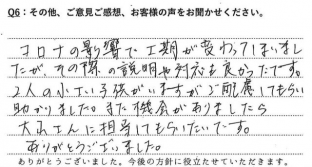 Q6：その他、ご意見ご感想、お客様の声をお聞かせください。
コロナの影響で工期が変わってしまいまし
たが、その際の説明や対応も良かったです。
2人の小さい子供がいますがご配慮してもらい
助かりました。また機会がありましたら
さんに担当してもらいたいです。
ありがとうございました。
ありがとうございました。今後の方針に役立たせていただきます。